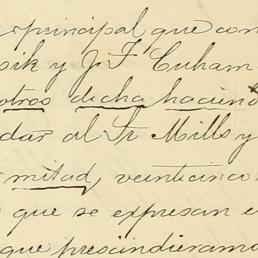 principal que con
sik y J. F. Cuham
otros dicha hacien
dar al Sr Mills y
mitad, veinticinco
que se expresan e
que prescindieramo